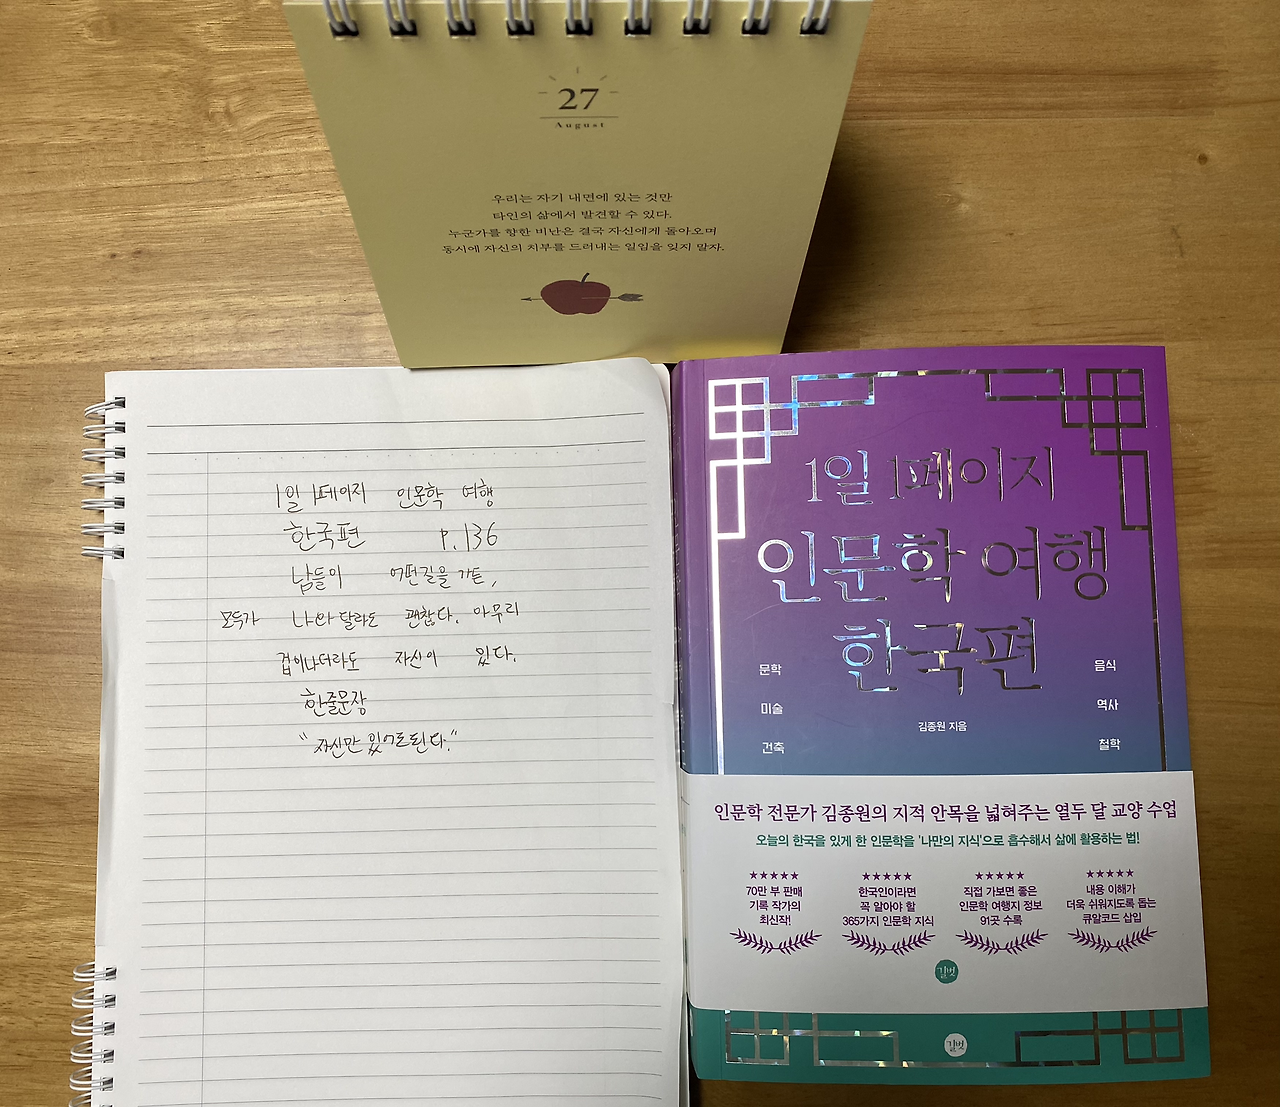 27
August
우리는 자기 내면에 있는 것만
타인의 삶에서 발견할 수 있다.
누군가를 향한 비난은 결국 자신에게 돌아오며
동시에 자신의 치부를 드러내는 일임을 잊지 말자.
1일 1페이지 인문학 여행
한국편 p.136
남들이 어떤길을 가든,
모두가 나와 달라도 괜찮다. 아무리
겁이나더라도 자신이 있다.
한줄문장
"자신만 있어도된다."
1일 1페이지
인문학 여행
한국편
문학
미술
건축
음식
역사
철학
김종원 지음
인문학 전문가 김종원의 지적 안목을 넓혀주는 열두 달 교양 수업
오늘의 한국을 있게 한 인문학을 '나만의 지식'으로 흡수해서 삶에 활용하는 법!
★★★★★
70만 부 판매
기록 작가의
최신작!
★★★★★
한국인이라면
꼭 알아야 할
365가지 인문학 지식
★★★★★
직접 가보면 좋은
인문학 여행지 정보
91곳 수록
★★★★★
내용 이해가
더욱 쉬워지도록 돕는
큐알코드 삽입
길벗
길벗